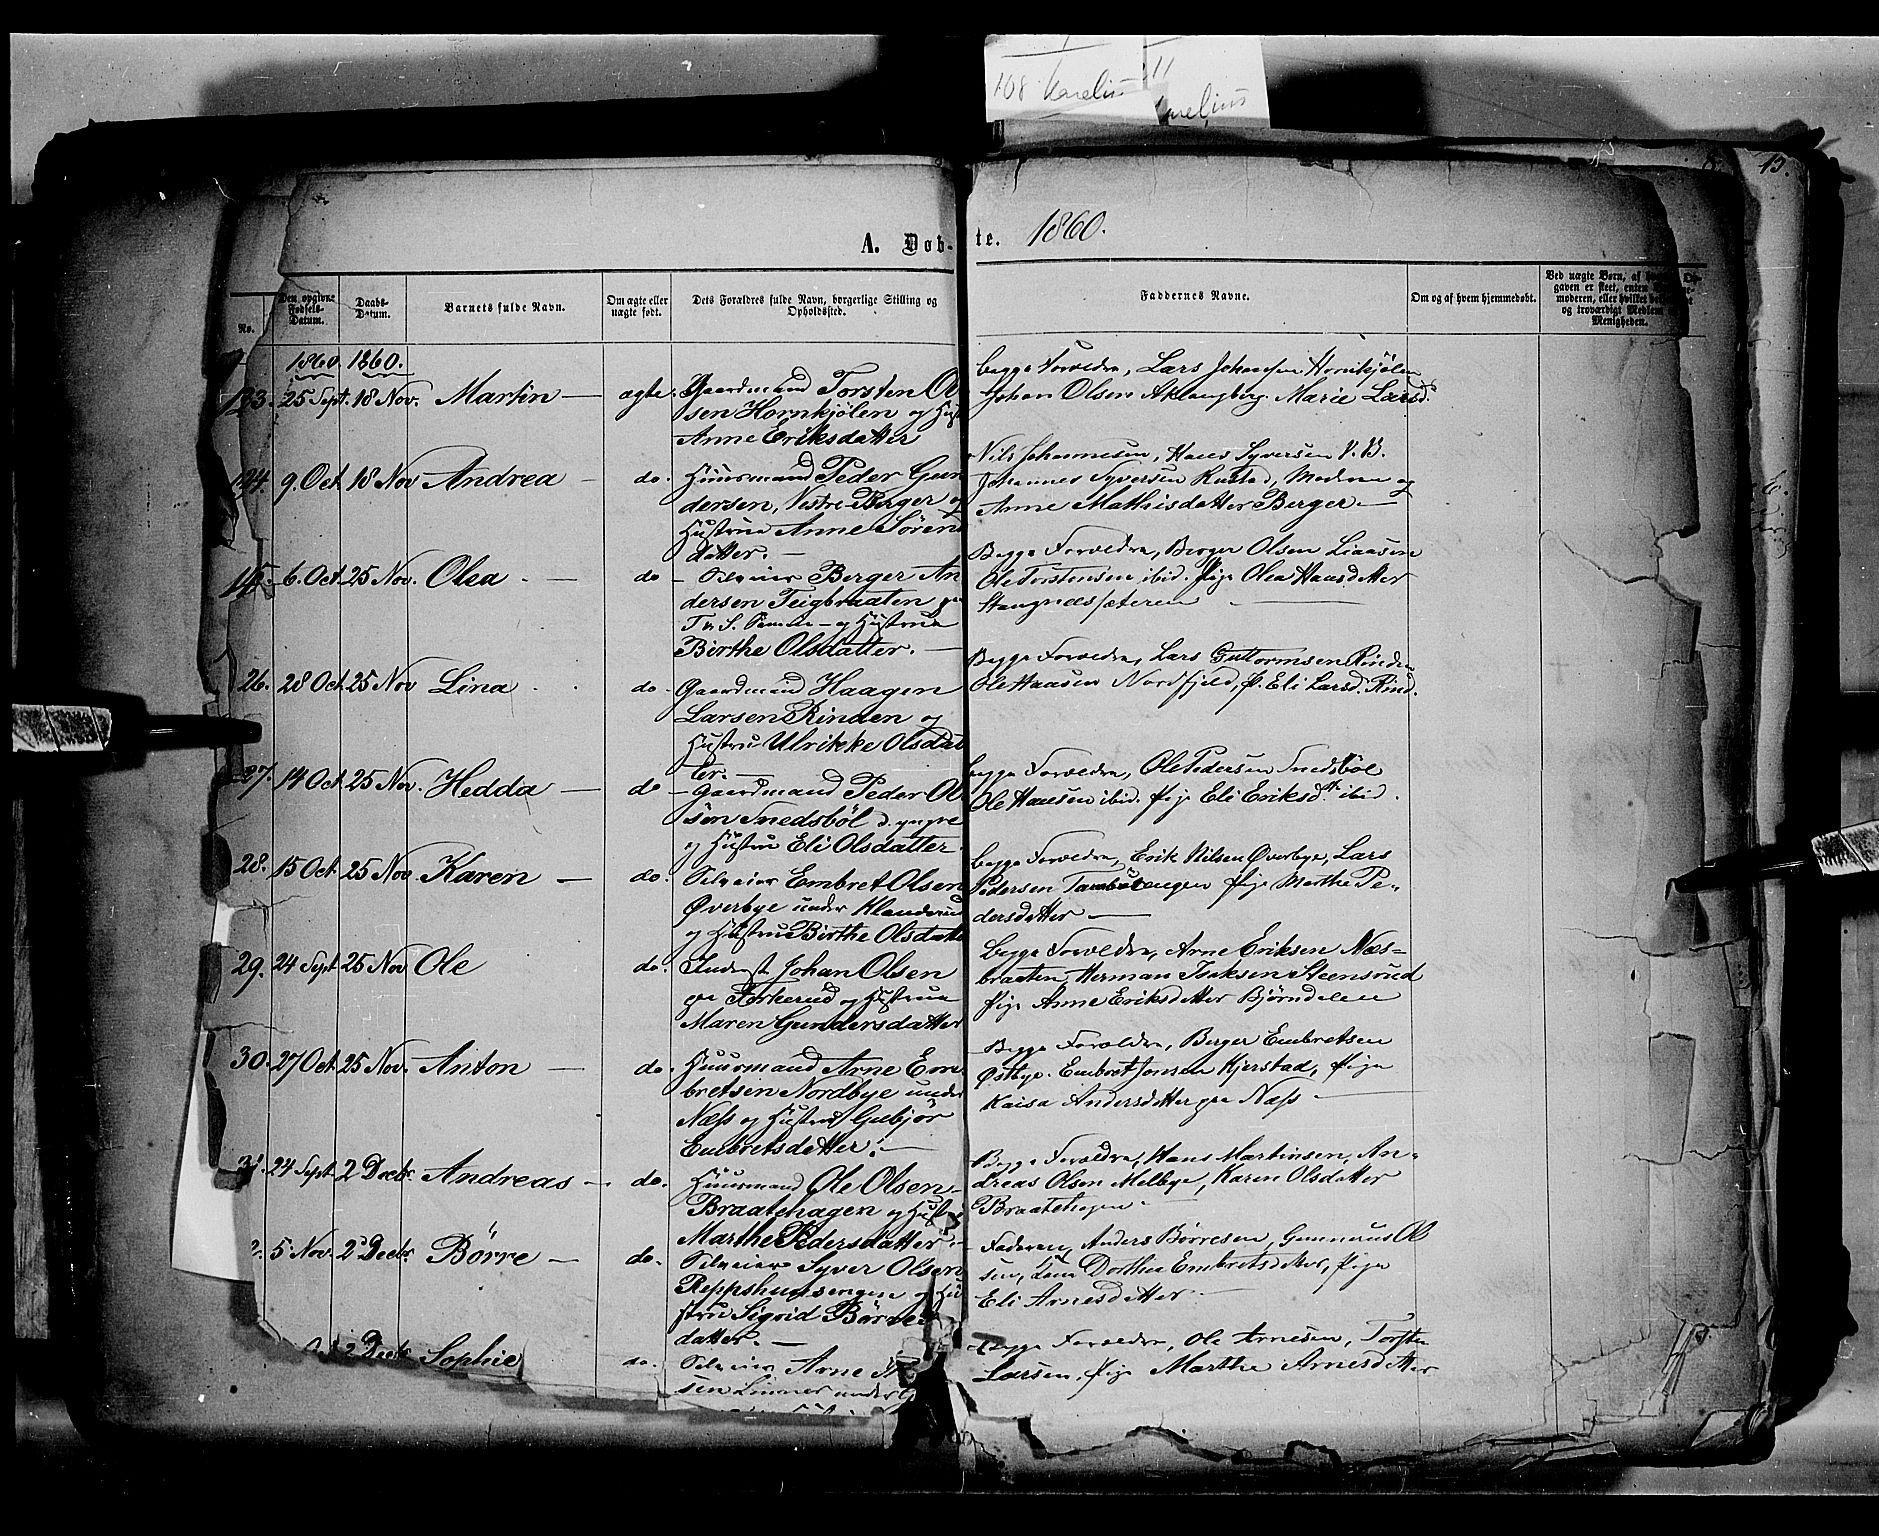 108 Karelius
Karelius
15.
A. Døb-te. 1860.
No.
Den opgivne Fødsels-Datum.
Daabs-Datum.
Barnets fulde Navn.
Om ægte eller uægte født.
Dets Forældres fulde Navn, borgerlige Stilling og Opholdssted.
Faddernes Navne.
Om og af hvem hjemmedøbt.
Ved uægte Børn, af
gaven er skeet, enten
moderen, eller hvilket
og troværdigt Medlem
Menigheden.
1860. 1860.
123. 25 Sept. 18 Nov. Martin — ægte. Gaardmand Torsten Ol
sen Hornkjølen og Hust
Anne Eriksdatter
Begge Forældre, Lars Johansen Hornkjølen
Johan Olsen Aklangberg. Marie Larsd.
124. 9. Oct. 18 Nov Andrea — do. Huusmand Peder Gun
dersen, Vestre Berger og
Hustrue Anne Søren
datter. —
Nils Johannesen, Hans Syversen V. B.
Johannes Syversen Rustad, Moderen og
Anne Mathisdatter Berger —
6. Oct. 25 Nov. Olea — do — Selveier Berger An
dersen Teigbraaten
og Hustrue
Birthe Olsdatter. —
Begge Forældre, Berger Olsen Liaasen
Ole Torstensen ibid. Pige Olea Hansdatter
Stangnessæteren —
26. 28 Oct. 25 Nov Lina do. Gaardmand Haagen
Larsen Rinden og
Hustru Ulrikke Olsdat
ter. —
Begge Forældre, Lars Guttormsen Rinden
Ole Hansen Nordfjeld, P. Eli Larsd. Rind.
27. 14 Oct. 25 Nov. Hedda — do — Gaardmand Peder Ol
sen Snedsbøl d. yngre
og Hustru Eli Olsdatter
Begge Forældre, Ole Pedersen Snedsbøl
Ole Hansen ibid. Pige Eli Eriksd. ibid.
28. 15 Oct. 25 Nov. Karen — do. Selveier Embret Olsen
Øverbye under Klanderud
og Hustru Birthe Olsdatt
Begge Forældre, Erik Nilsen Øverbye, Lars
Pedersen Pige Marthe Pe-
dersdatter —
29. 24 Sept 25 Nov Ole do. Inderst Johan Olsen
paa Torkerud og Hustrue
Maren Gundersdatter
Begge Forældre, Arne Eriksen Næs-
braaten, Herman Isaksen Steensrud
Pige Anne Eriksdatter Bjørndalen
30. 27 Oct. 25 Nov. Anton — do. Huusmand Arne Em
bretsen Nordbye under
Næss og Hustrue Gubjør
Embretsdatter. —
Begge Forældre, Berger Embretsen
Østbye. Embret Jonsen Kjerstad, Pige
Kaisa Andersdatter paa Næss —
31. 24 Sept. 2 Decbr. Andreas — do. Huusmand Ole Olsen
Braatehagen og Hust
Marthe Pedersdatter. —
Begge Forældre, Hans Martinsen, An-
dreas Olsen Melbye, Karen Olsdatter
Braatehagen —
5 Nov. 2 Decbr. Børre — do. Selveier Syver Olsen
Reppshuusengen og Hu
strue Sigrid Børres
datter. —
Faderen, Anders Børresen, Gunnerius Ol
sen, Dorthea Embretsdatter, Pige
Eli Arnesdatter —
2 Decbr. Sophie do. Selveier Arne
sen Linner under
Begge Forældre, Ole Arnesen, Torsten
Larsen, Pige Marthe Arnesdatter